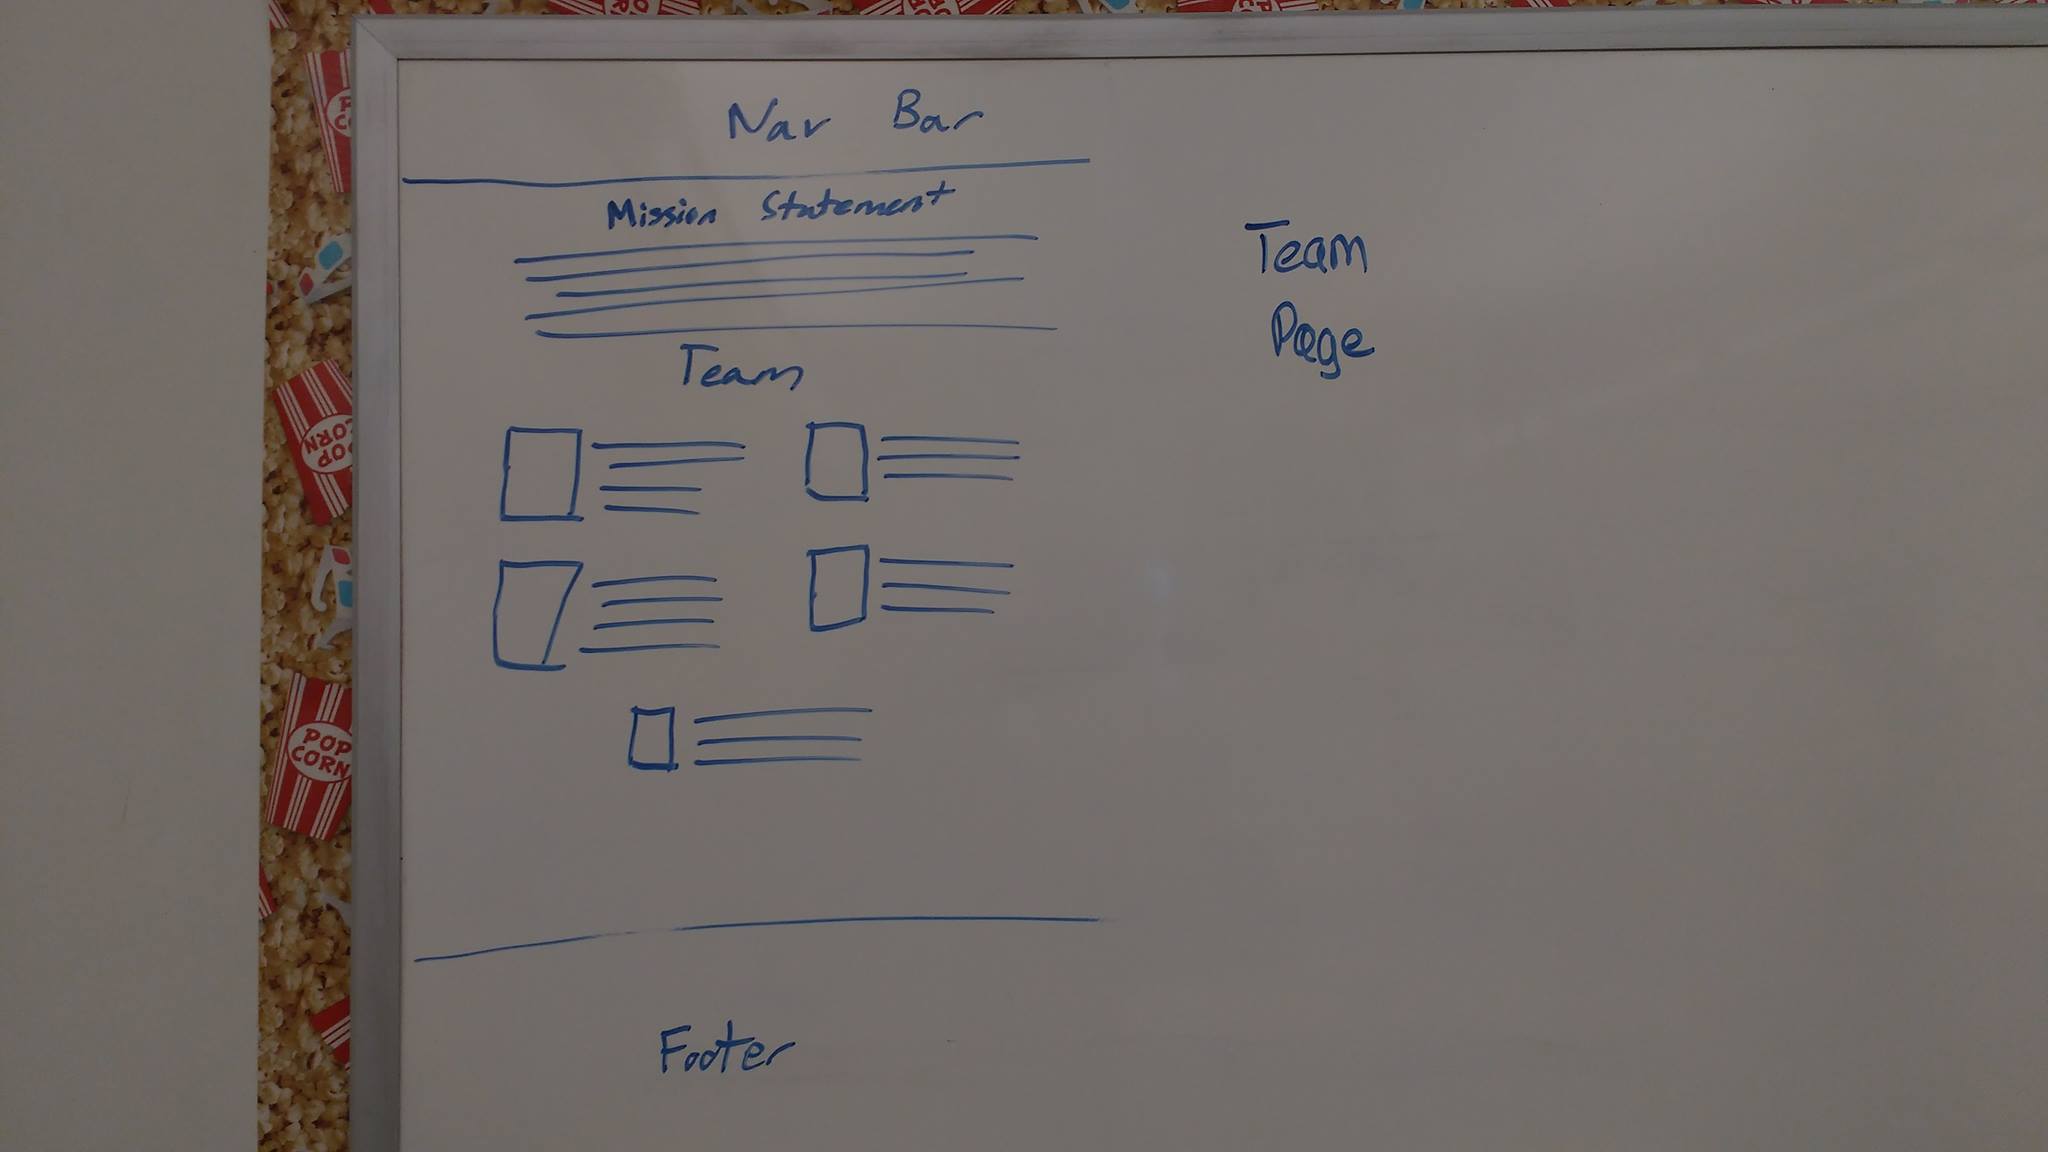 Nav Bar
Mission Statement
Team
Footer
Team
Page
POP
CORN
POP
CORN